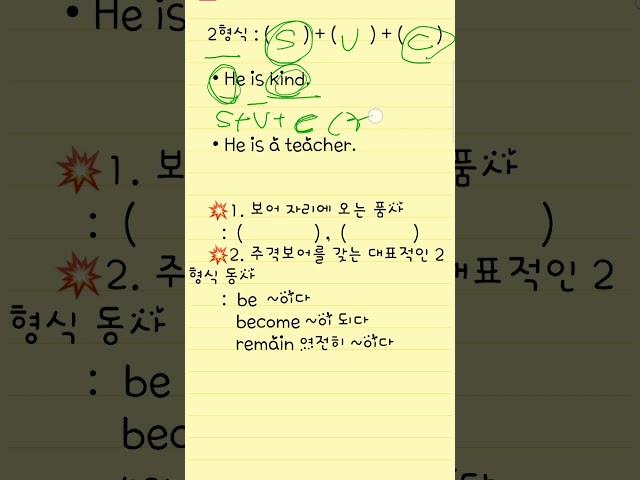 He is
2형식 : ( S ) + ( V ) + ( C )
• He is kind.
S+V+C (
• He is a teacher.
1. 보어 자리에 오는 품사
: (          ) , (          )
2. 주격보어를 갖는 대표적인 2
형식 동사
: be ~이다
become ~이 되다
remain 여전히 ~이다
1.
품사
: (
)
2.
대표적인 2
형식 동사
: be
bec